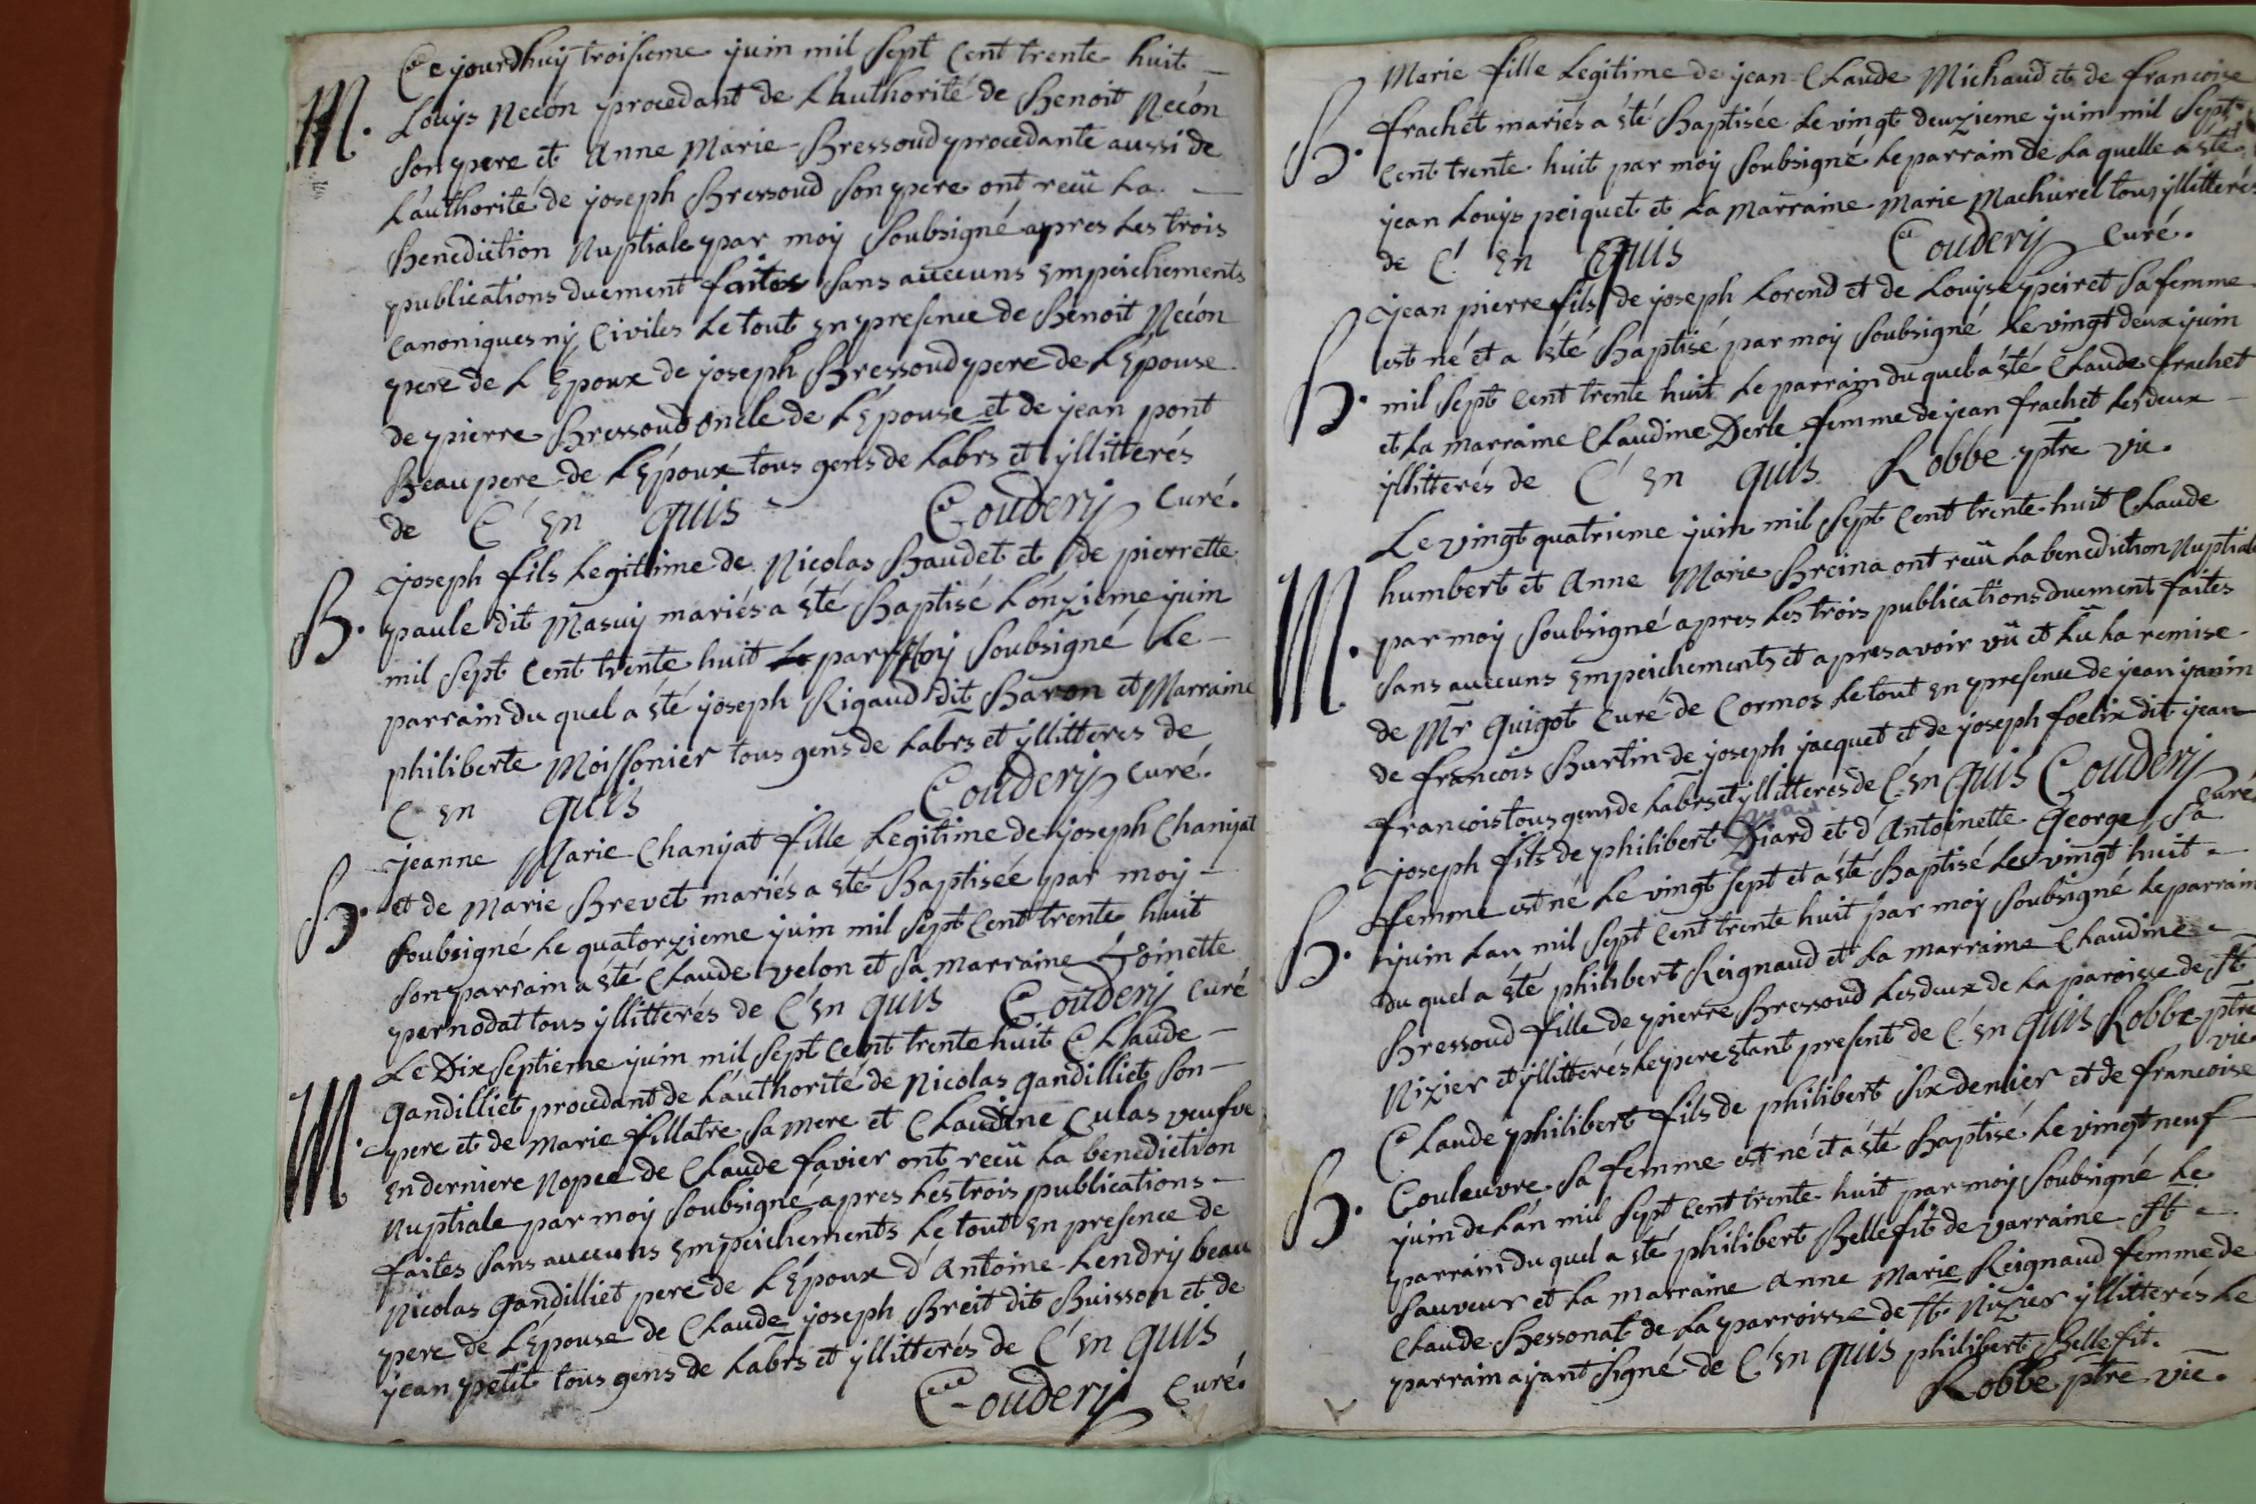 Ce jourdhuÿ troisieme juin mil sept cent trente huit
M. Louÿs Necón procedant de L'authorité de Benoit Necón
son pere et Anne Marie Bressoud procedante aussi de
L'authorité de joseph Bressoud son pere ont reçû La
Benediction Nuptiale par moÿ soubsigné apres Les trois
publications duement faites sans auccuns Empeichements
canoniques nÿ Civiles Le tout En presence de Benoit Necón
pere de L'Epoux de joseph Bressoud pere de L'Epouse
de pierre Bressoud oncle de L'Epouse et de jean pont
Beaupere de L'Epoux tous gens de Labrs et ÿllitterés
de C' En quis Coudery Curé.
joseph fils Legitime de Nicolas Baudet et de pierrette
B. paule dit Masuÿ mariés a été Baptisé L'onzieme juin
mil sept cent trente huit par Moÿ soubsigné Le
parrain du quel a été joseph Rigaud dit Baron et Marraine
philiberte Moissonier tous gens de Labrs et ÿllitteres de
C' En quis Coudery Curé.
jeanne Marie Chanyat fille Legitime de joseph Chanyat
B. et de Marie Brevet mariés a été Baptisée par moÿ
soubsigné Le quatorzieme juin mil sept cent trente huit
son parrain a été Claude velon et sa marraine Toinette
pernodat tous ÿllitterés de C' En quis Coudery Curé
Le Dix septieme juin mil sept cent trente huit Claude
M. Gandilliet procedant de L'authorité de Nicolas Gandilliet son
pere et de Marie fillatre sa Mere et Claudine Culas veufve
En derniere Nopce de Claude favier ont reçû La benediction
Nuptiale par moÿ soubsigné apres Les trois publications
faites sans auccuns Empeichements Le tout En presence de
Nicolas Gandilliet pere de L'Epoux d'Antoine Lendrÿ beau
pere de L'Epouse de Claude joseph Breit dit Buisson et de
jean petit tous gens de Labrs et ÿllitterés de C' En quis
Coudery Curé.
Marie fille Legitime de jean Claude Michaud et de francoise
B. frachet mariés a été Baptisée Le vingt deuzieme juin mil sept
cent trente huit par moÿ soubsigné Le parrain de La quelle a été
jean Louÿs peiquet et La Marraine Marie Machurel tous ÿllitterés
de C' En quis Coudery Curé.
jean pierre fils de joseph Lorend et de Louÿse peiret sa femme
B. est né et a été Baptisé par moÿ soubsigné Le vingt deux juin
mil sept cent trente huit Le parrain du quel a été Claude frachet
et La marraine Claudine Derle femme de jean frachet Les deux
ÿllitterés de C' En quis Robbe ptre vic.
Le vingt quatrieme juin mil sept cent trente huit Claude
M. humbert et Anne Marie Breina ont reçû La benediction Nuptiale
par moÿ soubsigné apres Les trois publications duement faites
sans auccuns Empeichements et apres avoir vû et Lû La remise
de Mr Guigot Curé de Cormos Le tout En presence de jean janin
de francois Burtin de joseph jacquet et de joseph foelix dit jean
francois tous gens de Labrs et ÿllitterés de C' En quis Coudery Curé
joseph fils de philibert Diard et d'Antoinette George sa
B. femme est né Le vingt sept et a été Baptisé Le vingt huit
juin L'an mil sept cent trente huit par moÿ soubsigné Le parrain
du quel a été philibert Reignaud et La marraine Claudine
Bressoud fille de pierre Bressoud Les deux de La paroisse de St
Nizier et ÿllitterés Le pere étant present de C' En quis Robbe ptre vic.
Claude philibert fils de philibert six denier et de francoise
B. Couleuvre sa femme est né et a été Baptisé Le vingt neuf
juin de L'an mil sept cent trente huit par moÿ soubsigné Le
parrain du quel a été philibert Bellefit de varraine St
sauveur et La marraine Anne Marie Reignaud femme de
Claude Bessonat de La parroisse de St Nizier ÿllitterés Le
parrain aÿant signé de C' En quis philibert Bellefit.
Robbe ptre vic.